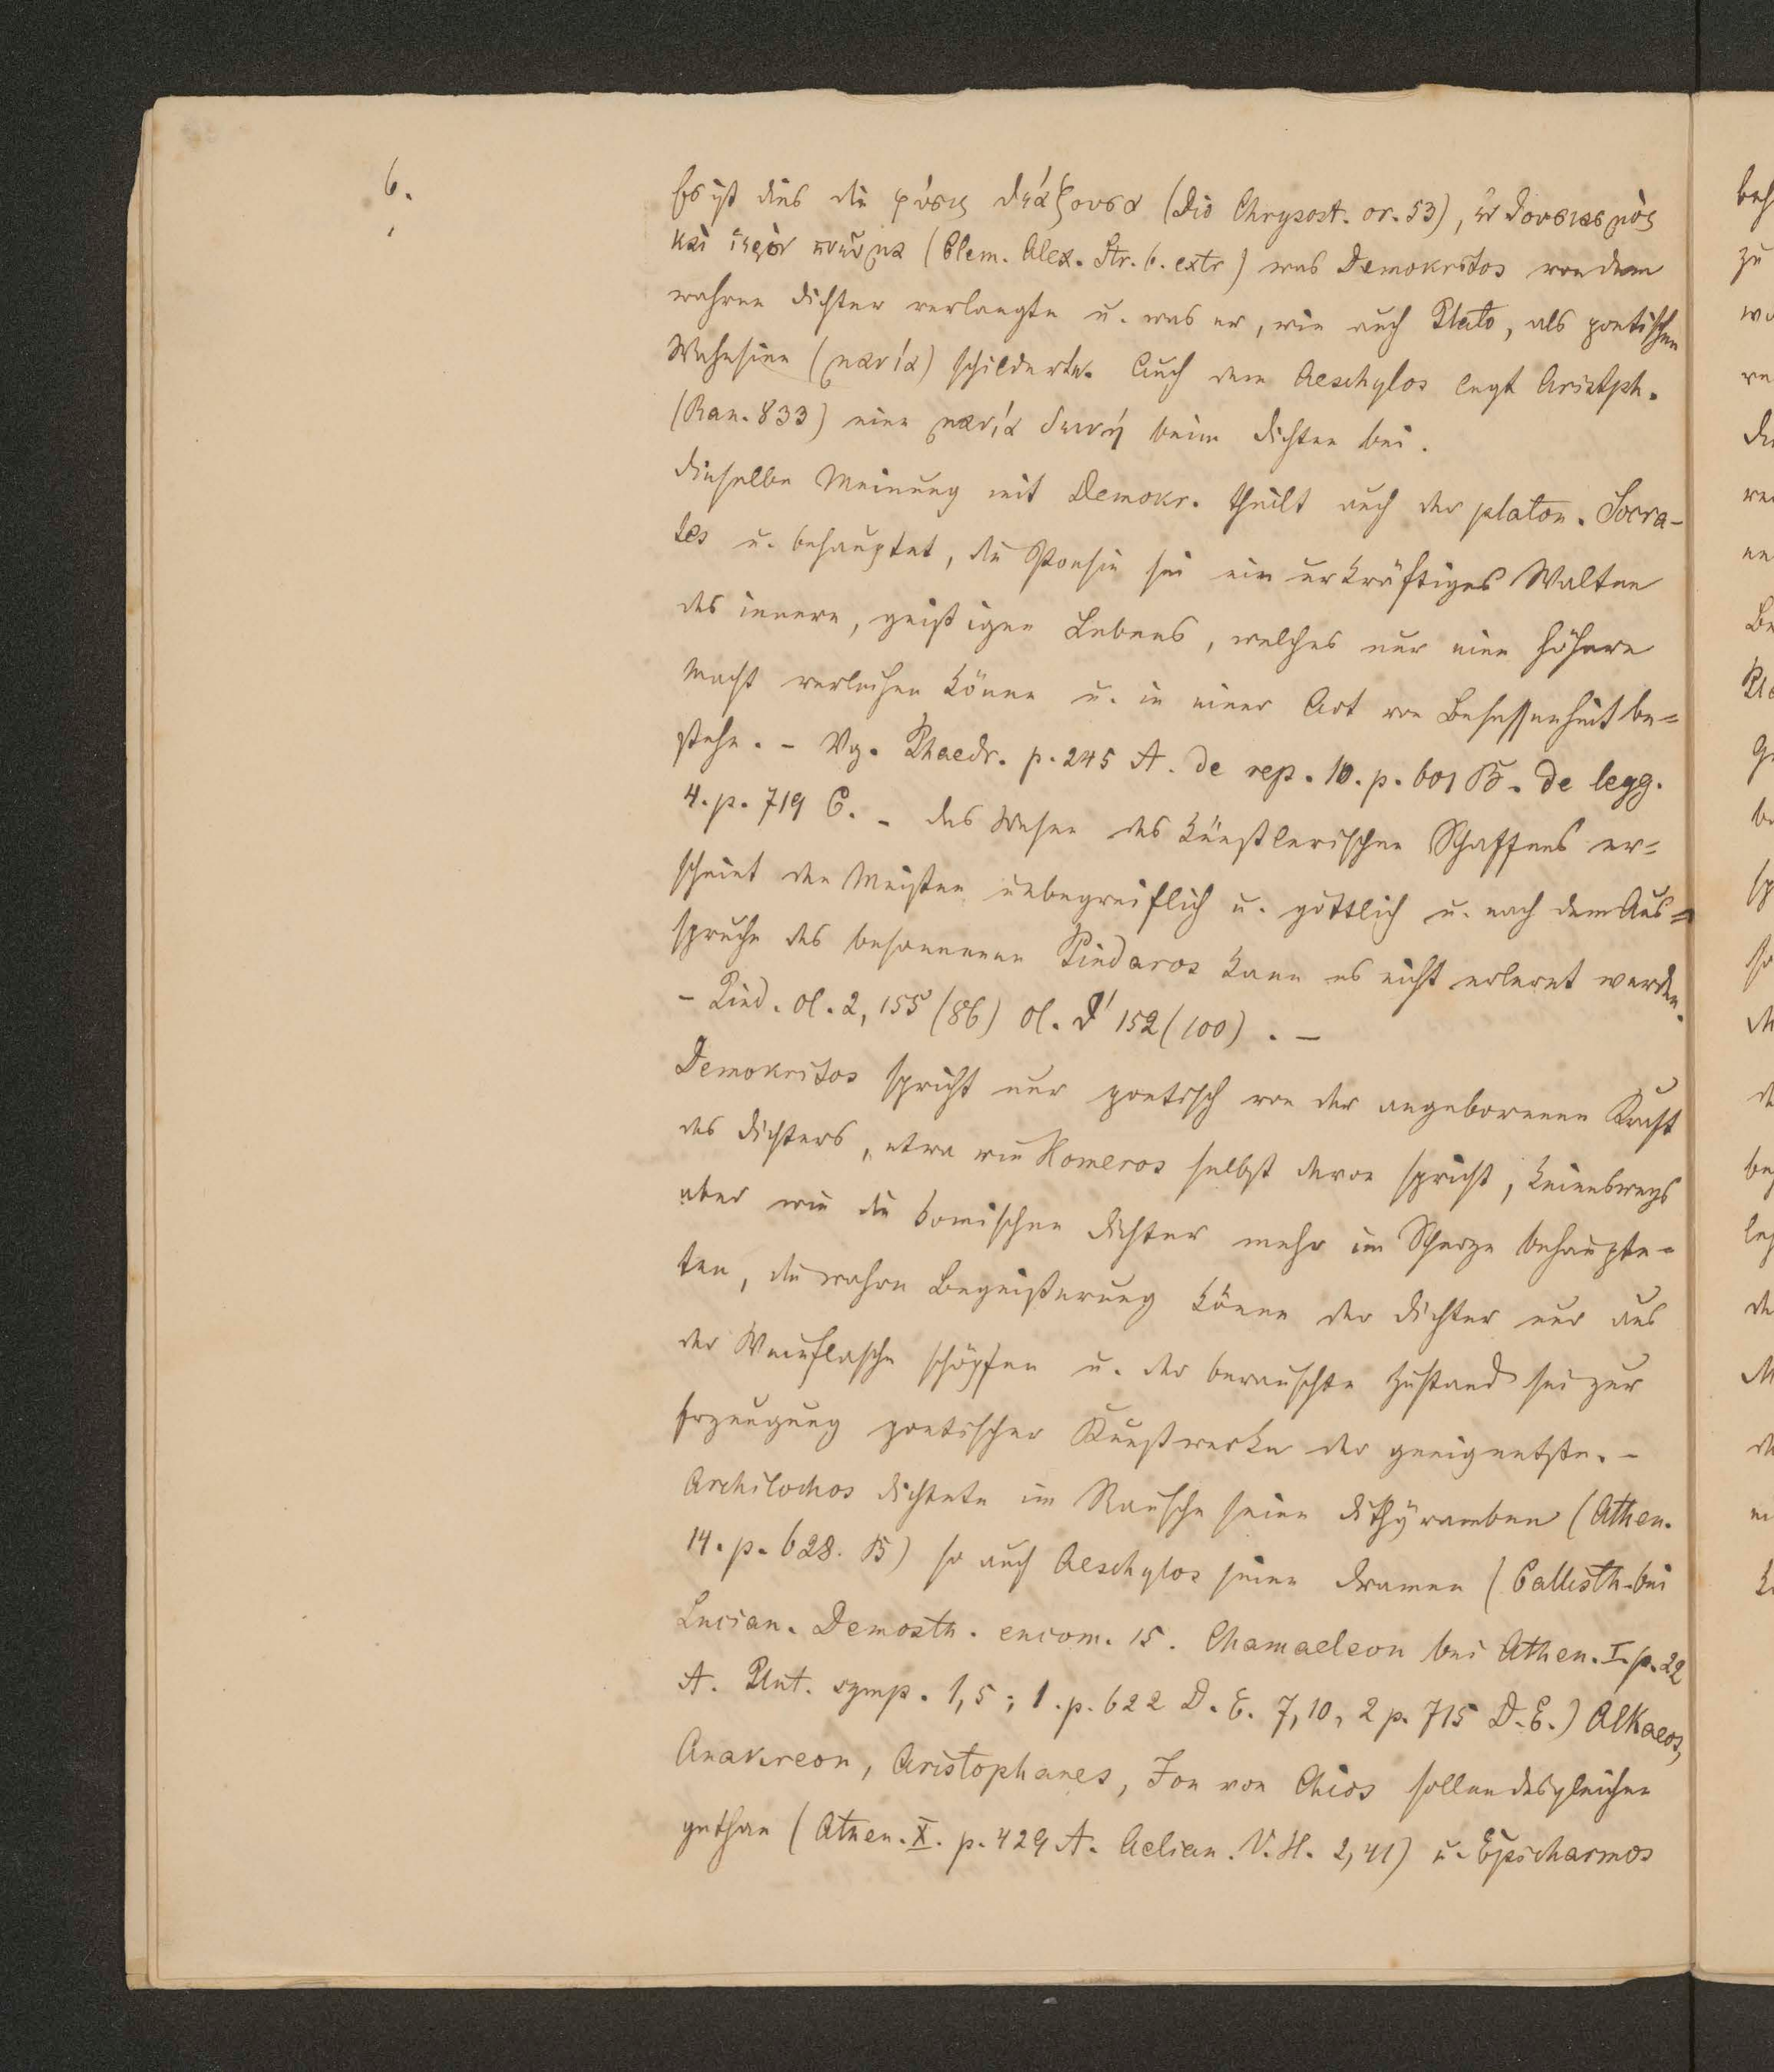 6.
Es ist dies die φύσις θεάζουσα (Dio Chrysost. or. 53), ἐνθουσιασμὸς
καὶ ἱερὸν πνεῦμα (Clem. Alex. Str. 6. extr) was Demokritos von dem
wahren Dichter verlangte u. was er, wie auch Plato, als poetischen
Wahnsinn (μανία) schilderte. Auch dem Aeschylos legt Aristph.
(Ran. 833) eine μανία δεινή beim Dichten bei.
Dieselbe Meinung mit Demokr. theilt auch der platon. Socra-
tes u. behauptet, die Poesie sei ein urkräftiges Walten
des innern, geistigen Lebens, welches nur eine höhere
Macht verleihen könne u. in einer Art von Besessenheit be=
stehe. – Vg. Phaedr. p. 245 A. de rep. 10. p. 601 B. de legg.
4. p. 719 C. – das Wesen des künstlerischen Schaffens er=
scheint den Meisten unbegreiflich u. göttlich u. nach dem Aus=
spruche des besonnenen Pindaros kann es nicht erlernt werden.
– Pind. Ol. 2, 155 (86) Ol. 152 (100). –
Demokritos spricht nur poetisch von der angeborenen Kraft
des Dichters, etwa wie Homeros selbst davon spricht, keineswegs
aber wie die komischen Dichter mehr im Scherze behaupte-
ten, die wahre Begeisterung könne der Dichter nur aus
der Weinflasche schöpfen u. der berauschte Zustand sei zur
Erzeugung poetischer Kunstwerke der geeignetste. –
Archilochos dichtete im Rausche seine Dithyramben (Athen.
14. p. 628. B) so auch Aeschylos seine Dramen (Callisth. bei
Lucian. Demosth. encom. 15. Chamaeleon bei Athen. I. p. 22
A. Plut. symp. 1,5; 1. p. 622 D. E. 7,10, 2 p. 715 D. E.) Alkaeos,
Anakreon, Aristophanes, Ion von Chios sollen desgleichen
gethan (Athen. X. p. 429 A. Aelian. V. H. 2,41) u. Epicharmos